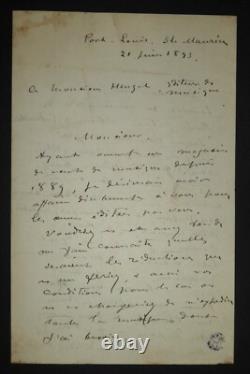 Port-Louis, Ile Maurice
21 Juin 1893
A Monsieur Heugel éditeur de
musique
Monsieur,
Ayant ouvert un magasin
de vente de musique depuis
1889, je désirerais avoir
affaire directement à vous pour
les œuvres éditées par vous.
Voudriez vous et
me faire connaître quelles
seraient les réductions que
vous me feriez & aussi vos
conditions pour le cas où
vous vous chargeriez de m'expédier
toute la musique dont
j'ai besoin
www.collect-home.com